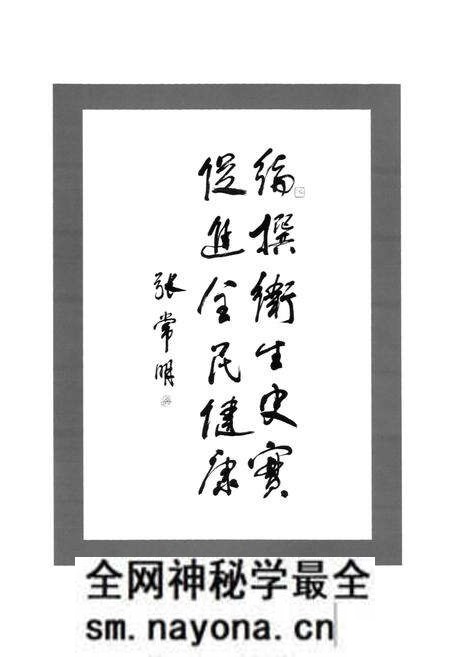 編撰衛生史實
促進全民健康
張常明
全网神秘学最全
sm.nayona.cn